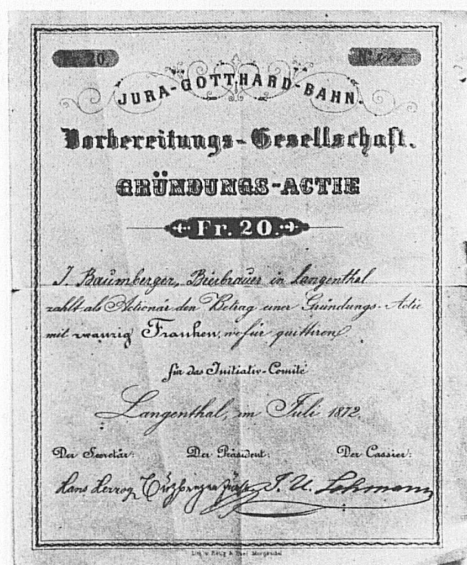 20
JURA-GOTTHARD-BAHN.
Vorbereitungs-Gesellschaft.
GRÜNDUNGS-ACTIE
Fr. 20.
J. Baumberger, Bierbrauer in Langenthal
zahlt als Actionär den Betrag einer Gründungs-Actie
mit zwanzig Franken, wofür quittiren
für das Initiativ-Comité
Langenthal, im Juli 1872.
Der Secretär: Der Präsident: Der Cassier:
Hans Herzog J. U. Lehmann